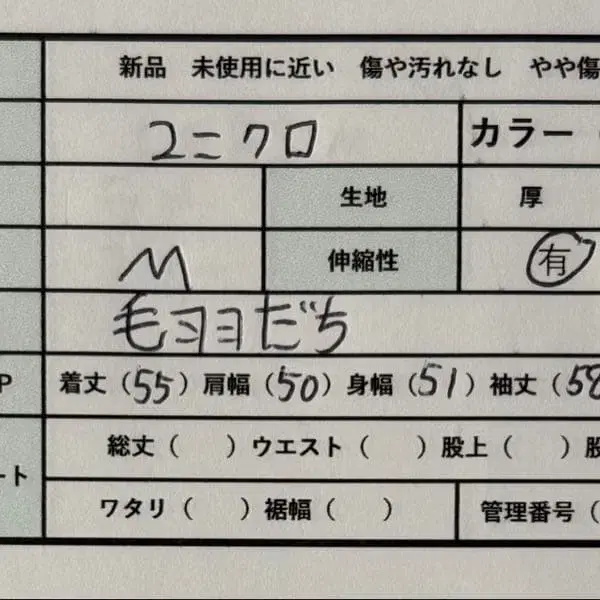 新品 未使用に近い 傷や汚れなし やや傷
ユニクロ カラー
生地 厚
M 伸縮性 有
毛ヨヨだち
P 着丈（55）肩幅（50）身幅（51）袖丈（58
総丈（ ）ウエスト（ ）股上（ ）股
ート
ワタリ（ ）裾幅（ ） 管理番号（